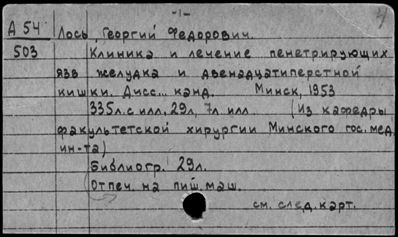 -1-
А 54 Лось, Георгий Федорович.
503 Клиника и лечение пенетрирующих
язв желудка и двенадцатиперстной
кишки. Дисс... канд. Минск, 1953
335л. с илл, 29л, 7л илл (Из кафедры
факультетской хирургии Минского гос. мед.
ин-та)
Библиогр. 29л.
Отпеч. на пиш. маш.
см. след. карт.